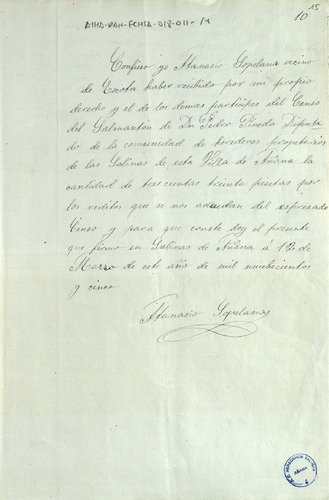 15
10
AHHA-DAH-FCHTA-018-011-14
Confieso yo Atanasio Sopelana vecino
de haber recibido por mi propio
derecho y el de los demas participes del Censo
del Salmanton de Dn Pedro Pinedo Diputa
do de la comunidad de herederos propietarios
de las Salinas de esta Villa de Añana la
cantidad de trescientas treinta pesetas por
los reditos que se nos adeudan del espresado
Censo y para que conste doy el presente
que firmo en Salinas de Añana á de
Marzo de este año de mil nuebecientos
y cinco
Atanasio Sopelana
AÑANA